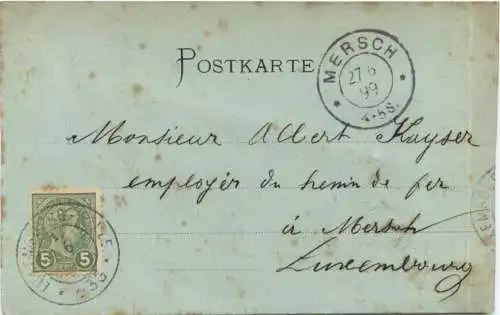 MERSCH
27 6
99
4-5S.
POSTKARTE
Monsieur Albert Kayser
employér du hemin de fer
à Mersch
Luxembourg
5 5